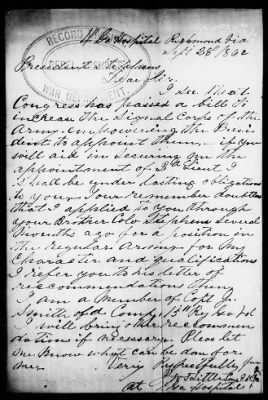 Ga Hospital Richmond Va
Sept 28th 1862
President Stephens
Dear Sir.
I see that
Congress has passed a bill to
increase the Signal Corps of the
Army empowering the Presi
dent to appoint them. if you
will aid in securing me the
appointment of Lieut
I shall be under lasting obligations
to you. You remember doubtless
that I applied to you through
your Brother Col Stephens several
months ago for a position in
the Regular Army. for my
Character and qualifications
I refer you to his letter of
reccommendations then
I am a member of Capt
Smith Comp. 15th Reg
I will bring other reccomen
dations if necessary. Please let
me know what can be done for
me. Very Respectfully
at Ga Hospital
RECORD
WAR DEPARTMENT.